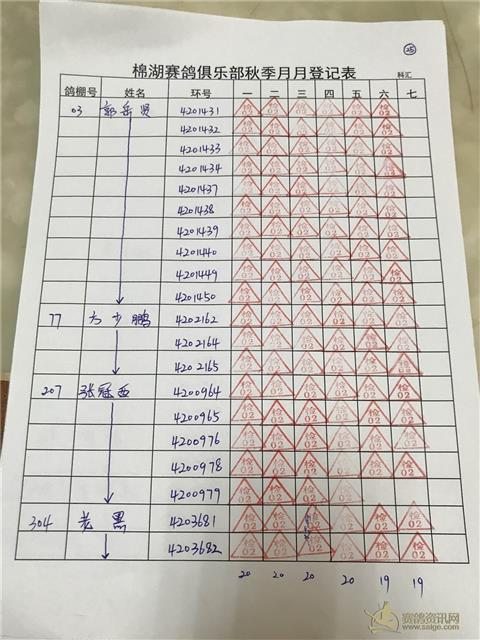 25
棉湖赛鸽俱乐部秋季月月登记表
科汇
鸽棚号 姓名 环号 一 二 三 四 五 六 七
03 郭岳贤 4201431 检02 检02 检02 检02 检02 检02
4201432 检02 检02 检02 检02 检02 检02
4201433 检02 检02 检02 检02 检02 检02
4201434 检02 检02 检02 检02 检02 检02
4201437 检02 检02 检02 检02 检02 检02
4201438 检02 检02 检02 检02 检02 检02
4201439 检02 检02 检02 检02 检02 检02
4201440 检02 检02 检02 检02 检02 检02
4201449 检02 检02 检02 检02 检02 检02
4201450 检02 检02 检02 检02 检02 检02
77 方少鹏 4202162 检02 检02 检02 检02 检02 检02
4202164 检02 检02 检02 检02 检02
4202165 检02 检02 检02 检02 检02 检02
207 张冠西 4200964 检02 检02 检02 检02 检02 检02
4200965 检02 检02 检02 检02 检02 检02
4200976 检02 检02 检02 检02 检02 检02
4200978 检02 检02 检02 检02 检02 检02
4200979 检02 检02 检02 检02
304 老黑 4203681 检02 检02 检02 检02 检02 检02
4203682 检02 检02 检02 检02 检02 检02
20 20 20 20 19 19
赛鸽资讯网
www.saige.com